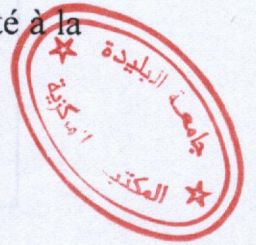 té à la
جامعة البليدة
المكتبة المركزية